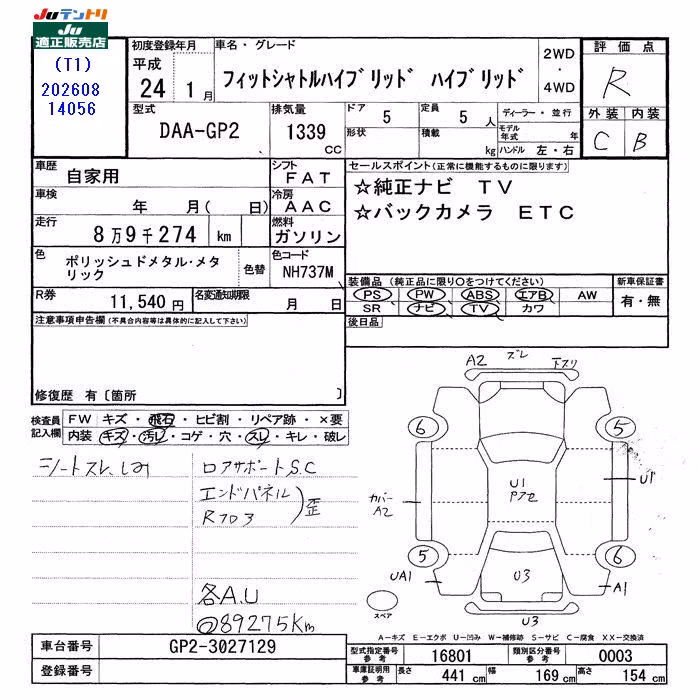 Juテントリ
Ju
適正販売店
(T1)
202608
14056
初度登録年月
平成
24 1月
車名・グレード
フィットシャトルハイブリッド ハイブリッド
2WD
・
4WD
評価点
R
外装 内装
C B
型式
DAA-GP2
排気量
1339
cc
ドア 5
形状
定員 5 人
積載 kg
ディーラー・並行
モデル年式 年
ハンドル 左・右
車歴
自家用
シフト
FAT
車検
年 月( 日)
冷房
AAC
走行
8万9千274 km
燃料
ガソリン
色
ポリッシュドメタル・メタリック
色替
色コード
NH737M
R券
11,540 円
名変通知期限
月 日
セールスポイント(正常に機能するものに限ります)
☆純正ナビ TV
☆バックカメラ ETC
装備品(純正品に限り○をつけてください)
PS PW ABS エアB AW
SR ナビ TV カワ
新車保証書
有・無
後日品
注意事項申告欄(不具合内容等は具体的に記入して下さい)
修復歴 有〔箇所 〕
検査員
記入欄
FW キズ・飛石・ヒビ割・リペア跡・×要
内装 キズ・汚レ・コゲ・穴・スレ・キレ・破レ
シートスレ、しみ
ロアサポートS.C
エンドパネル
Rフロア
歪
各A.U
@89275Km
A2 ズレ 下スリ
6
5
U1
U1
アクセ
カバー
A2
5
6
UA1
A1
U3
U3
スペア
A-キズ E-エクボ U-凹み W-補修跡 S-サビ C-腐食 XX-交換済
車台番号 GP2-3027129
登録番号
型式指定番号
参考
16801
類別区分番号
参考
0003
車庫証明用
参考
長さ 441 cm 幅 169 cm 高さ 154 cm